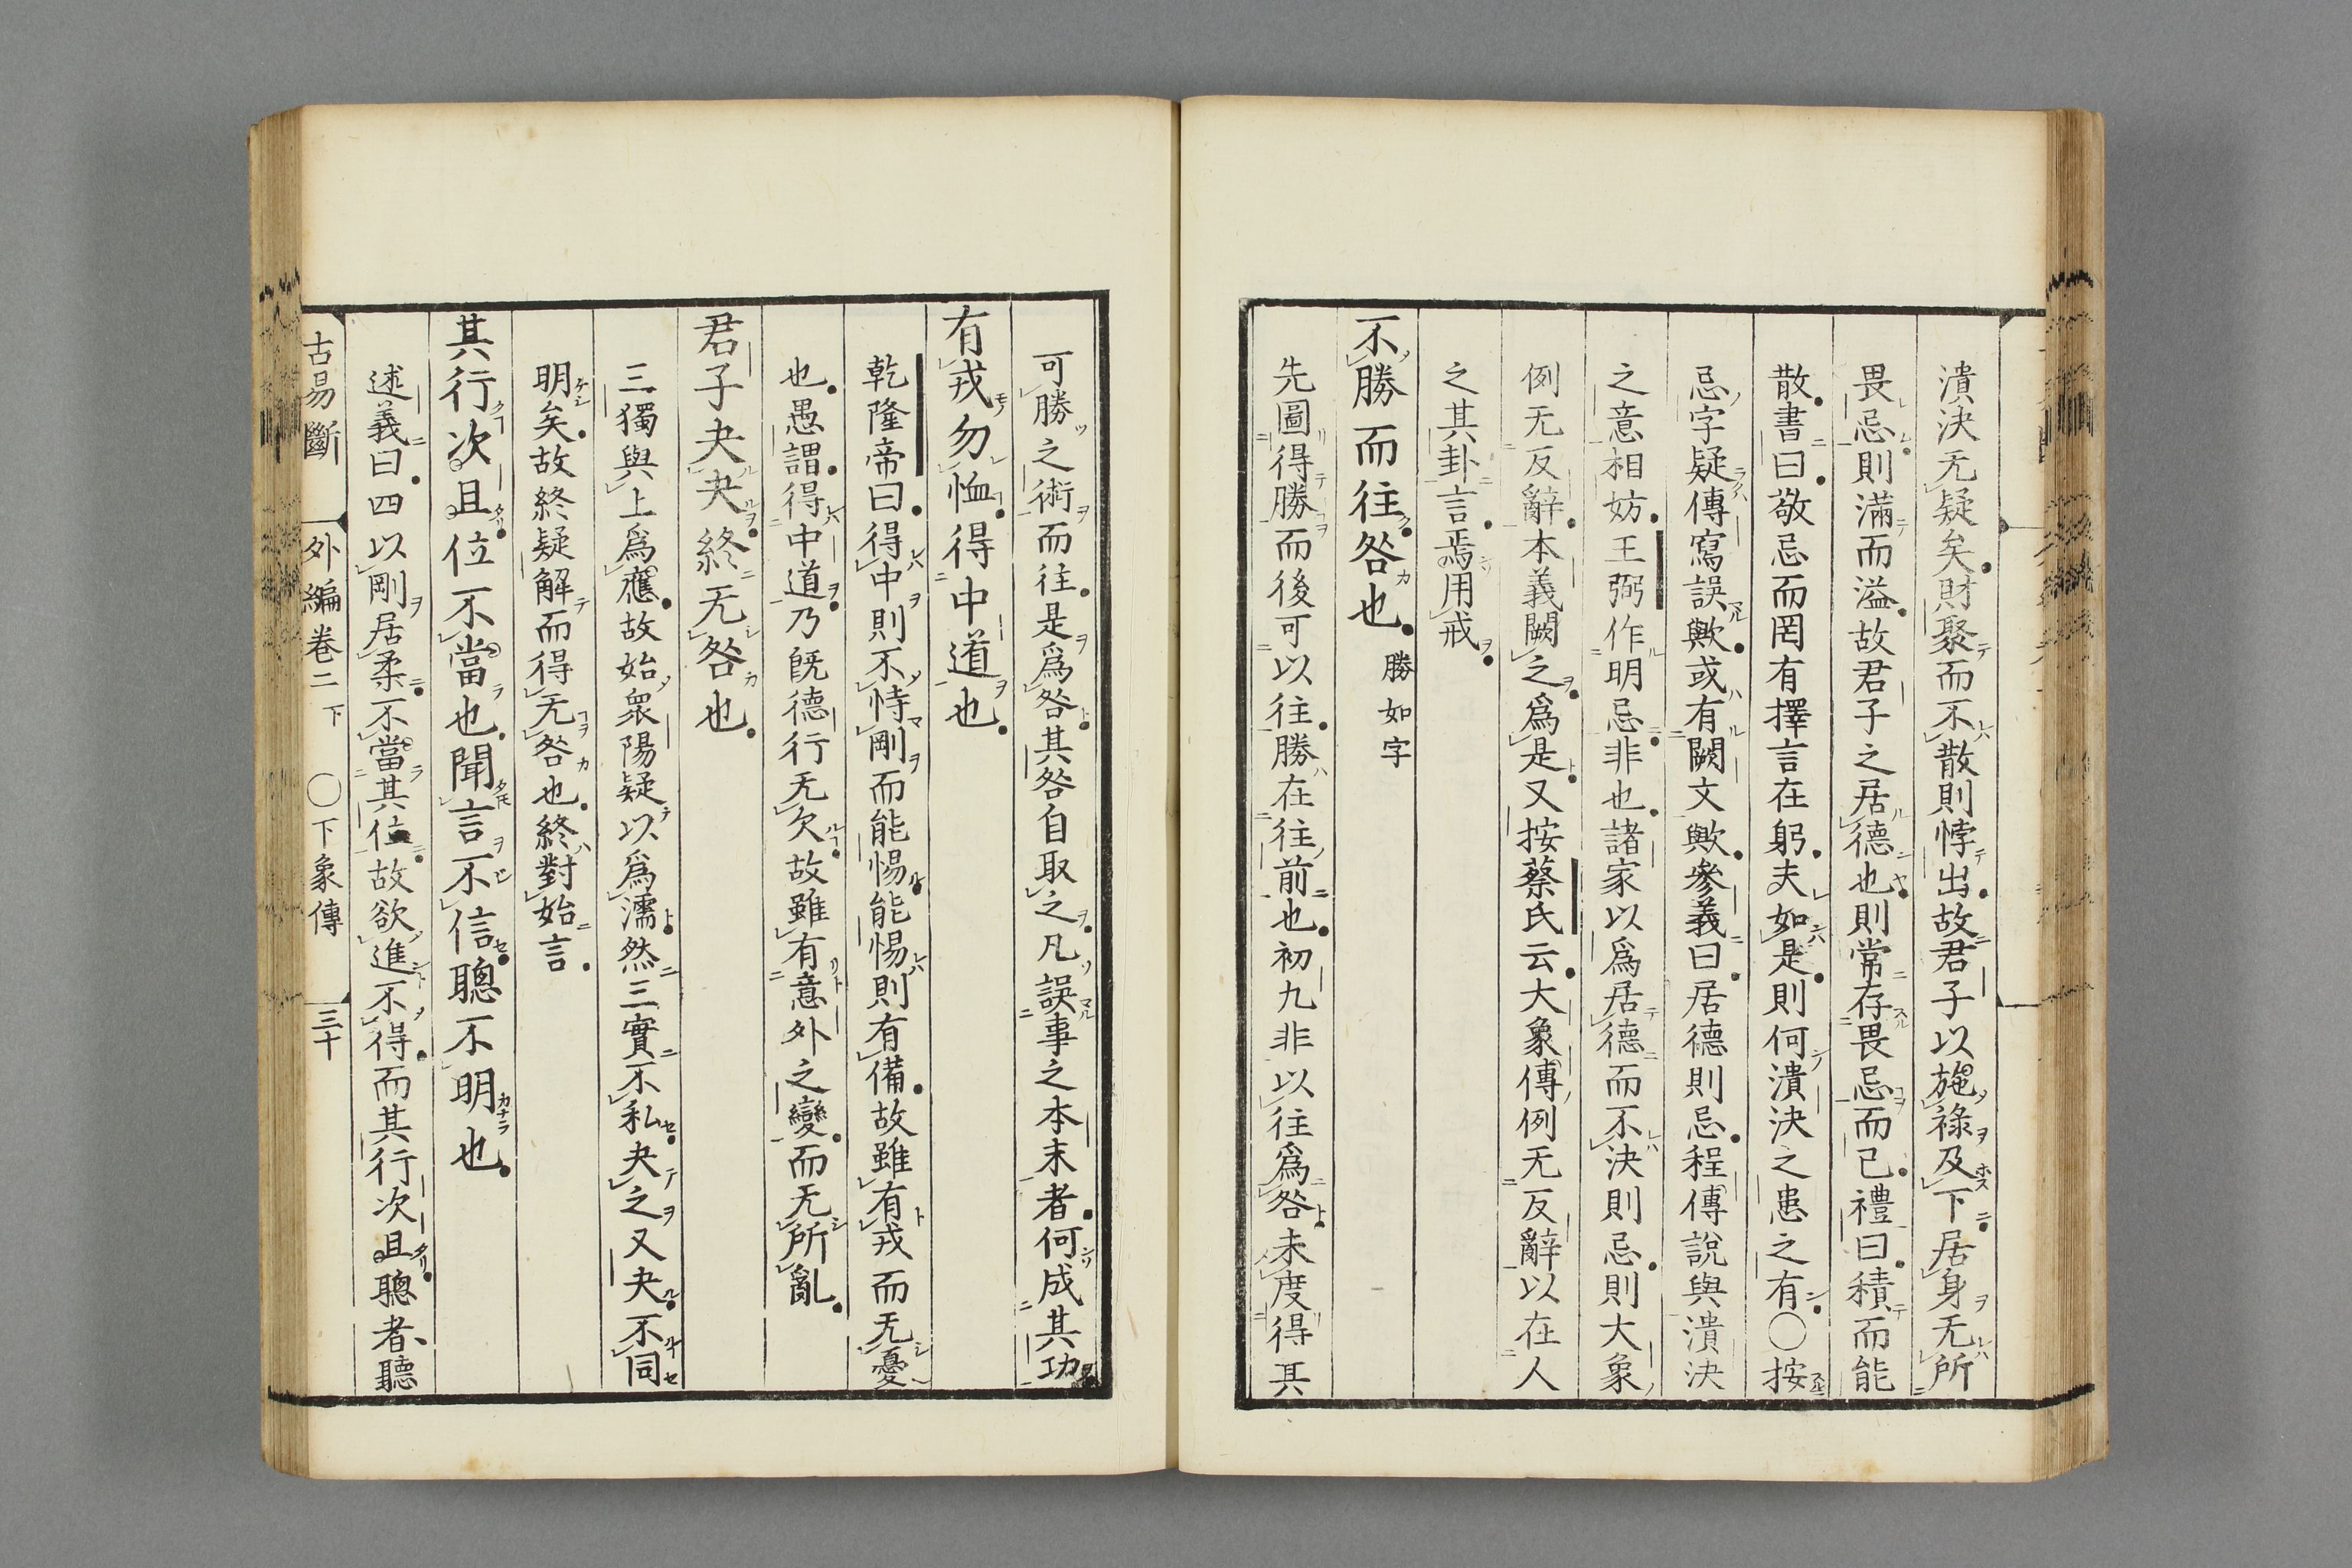 潰決无疑矣財聚而不散則悖出故君子以施祿及下居身无所
畏忌則滿而溢故君子之居德也則常存畏忌而已禮曰積而能
散書曰敬忌而罔有擇言在躬夫如是則何潰決之患之有○按
忌字疑傳寫誤歟或有闕文歟參義曰居德則忌程傳說與潰決
之意相妨王弼作明忌非也諸家以爲居德而不決則忌則大象
例无反辭本義闕之爲是又按蔡氏云大象傳例无反辭以在人
之其卦言焉用戒
不勝而往咎也 勝如字
先圖得勝而後可以往勝在往前也初九非以往爲咎未度得其
可勝之術而往是爲咎其咎自取之凡誤事之本末者何成其功
有戎勿恤得中道也
乾隆帝曰得中則不恃剛而能惕能惕則有備故雖有戎而无憂
也愚謂得中道乃旣德行无欠故雖有意外之變而无所亂
君子夬夬終无咎也
三獨與上爲應故始衆陽疑以爲濡然三實不私夬之又夬不同
明矣故終疑解而得无咎也終對始言
其行次且位不當也聞言不信聰不明也
述義曰四以剛居柔不當其位故欲進不得而其行次且聰者聽
古易斷 外編卷二 下 ○下象傳 三十